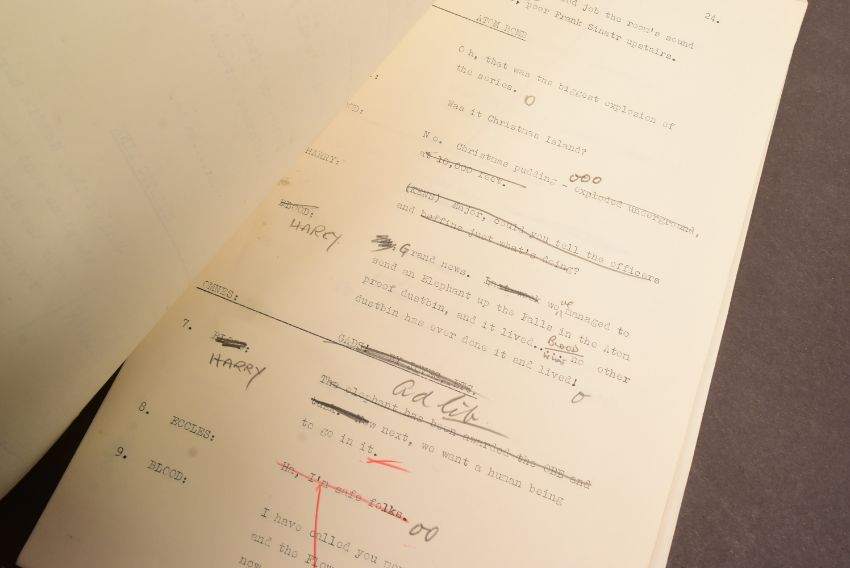 24.
job the room's sound
poor Frank Sinatr upstairs.
ATOM BOMB
Oh, that was the biggest explosion of
the series. O
Was it Christmas Island?
HARRY: No. Christmas pudding - ooo exploded underground,
at 10,000 feet.
BLOOD: HARRY Major, could you tell the officers
and boffins just what's doing?
Grand news. we've managed to
send an Elephant up the Falls in the Atom
proof dustbin, and it lived... BLOOD no other
dustbin has ever done it and lived! O
OMNES:
Ad lib
7. HARRY The elephant has been awarded the OBE and
next, we want a human being
to go in it.
8. ECCLES: Ha, I'm safe folks. OO
9. BLOOD: I have called you
and the
now